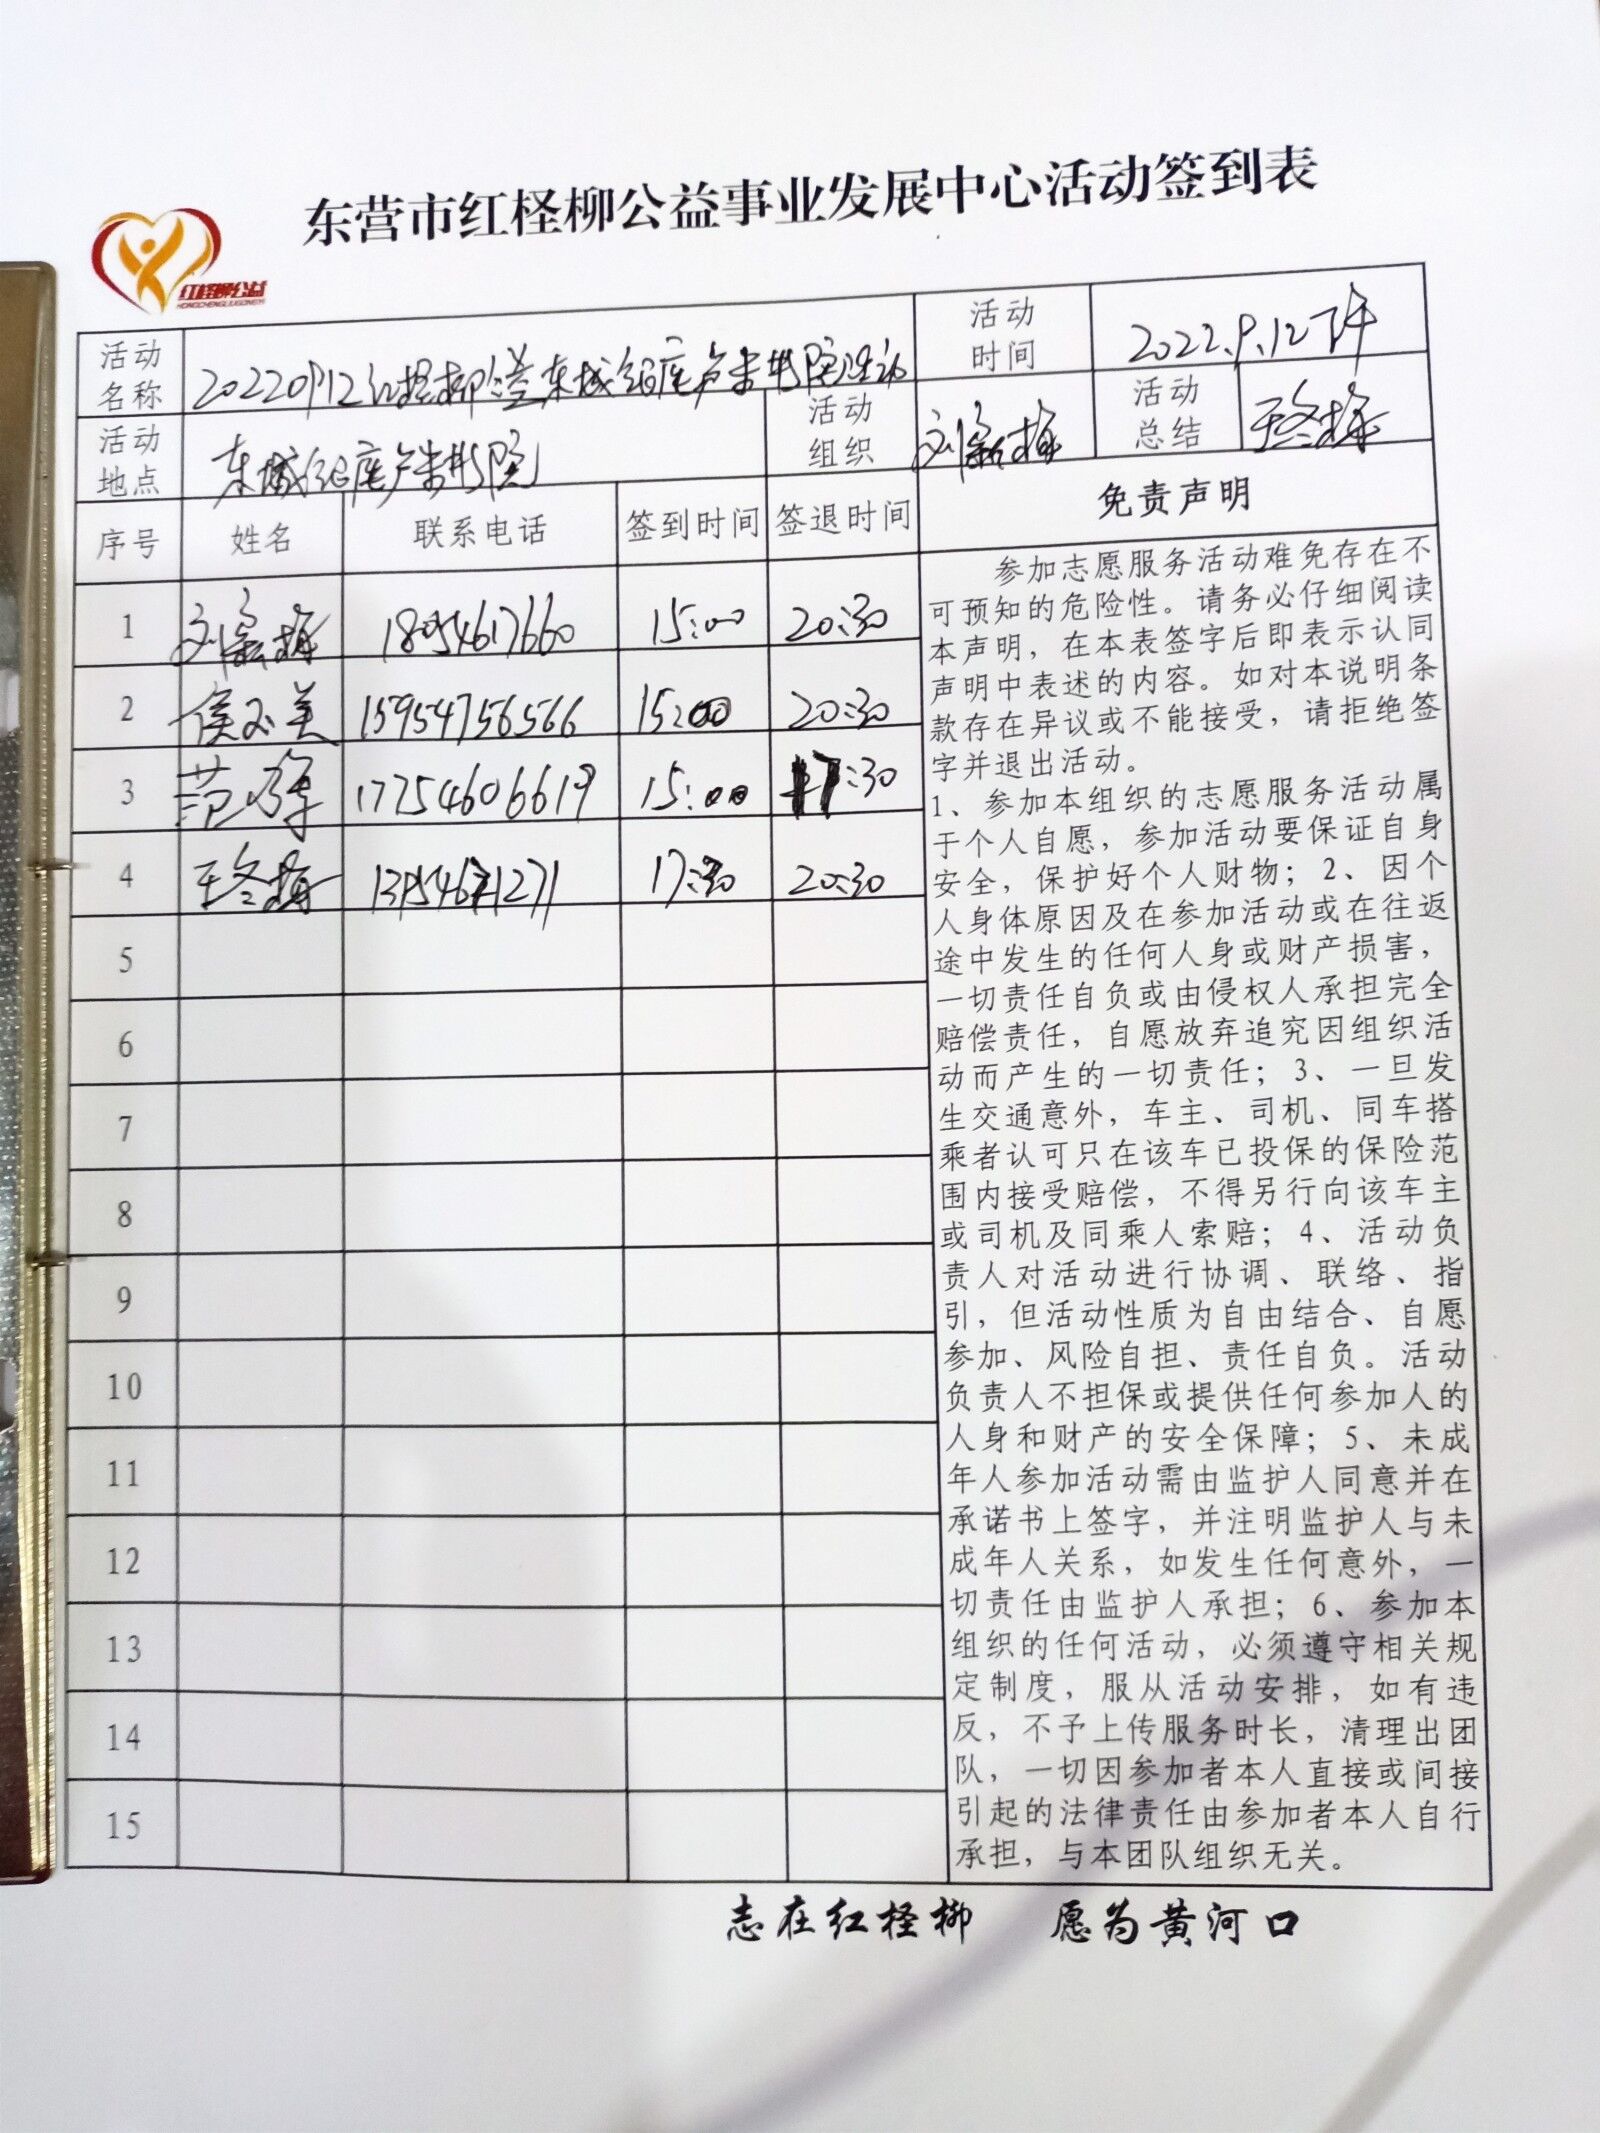 东营市红柽柳公益事业发展中心活动签到表
红柽柳公益
HONGCHENGLIUGONGYI
活动名称
20220912红柽柳公益东城
活动时间
2022.9.12下午
活动地点
东城
书院
活动组织
活动总结
王冬梅
序号 姓名 联系电话 签到时间 签退时间
1 18054617660 15:00 20:30
2 侯玉美 15954756566 15:00 20:30
3 范 17754606619 15:00 17:30
4 王冬梅 17:30 20:30
5
6
7
8
9
10
11
12
13
14
15
免责声明
参加志愿服务活动难免存在不
可预知的危险性。请务必仔细阅读
本声明，在本表签字后即表示认同
声明中表述的内容。如对本说明条
款存在异议或不能接受，请拒绝签
字并退出活动。
1、参加本组织的志愿服务活动属
于个人自愿，参加活动要保证自身
安全，保护好个人财物；2、因个
人身体原因及在参加活动或在往返
途中发生的任何人身或财产损害，
一切责任自负或由侵权人承担完全
赔偿责任，自愿放弃追究因组织活
动而产生的一切责任；3、一旦发
生交通意外，车主、司机、同车搭
乘者认可只在该车已投保的保险范
围内接受赔偿，不得另行向该车主
或司机及同乘人索赔；4、活动负
责人对活动进行协调、联络、指
引，但活动性质为自由结合、自愿
参加、风险自担、责任自负。活动
负责人不担保或提供任何参加人的
人身和财产的安全保障；5、未成
年人参加活动需由监护人同意并在
承诺书上签字，并注明监护人与未
成年人关系，如发生任何意外，一
切责任由监护人承担；6、参加本
组织的任何活动，必须遵守相关规
定制度，服从活动安排，如有违
反，不予上传服务时长，清理出团
队，一切因参加者本人直接或间接
引起的法律责任由参加者本人自行
承担，与本团队组织无关。
志在红柽柳 愿为黄河口